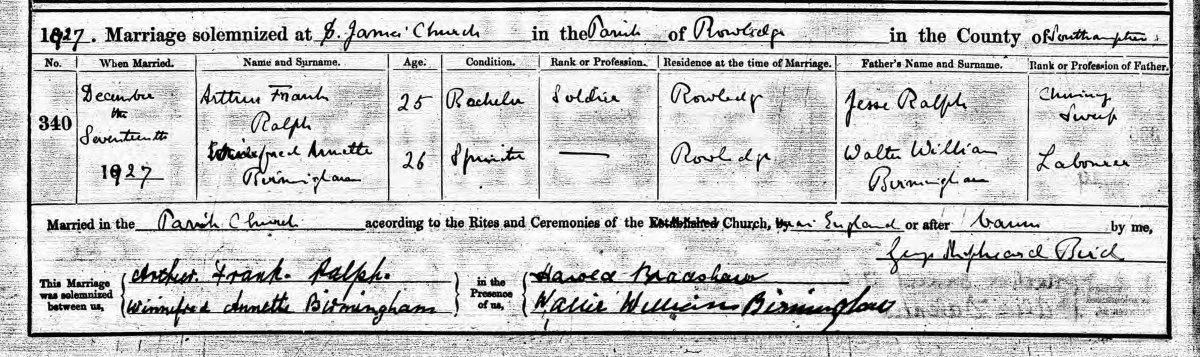 1927. Marriage solemnized at St. James' Church in the Parish of Rowledge in the County of Southampton
No. When Married. Name and Surname. Age. Condition. Rank or Profession. Residence at the time of Marriage. Father's Name and Surname. Rank or Profession of Father.
340
December
the
Seventeenth
1927
Arthur Frank
Ralph
25 Bachelor Soldier Rowledge Jesse Ralph Chimney
Sweep
Winnefred Annette
Birmingham
26 Spinster — Rowledge Walter William
Birmingham
Labourer
Married in the Parish Church according to the Rites and Ceremonies of the Established Church, of England or after banns by me,
Bird
This Marriage
was solemnized
between us,
Arthur Frank Ralph.
Winnefred Annette Birmingham
in the
Presence
of us,
Harold Bradshaw
William Birmingham